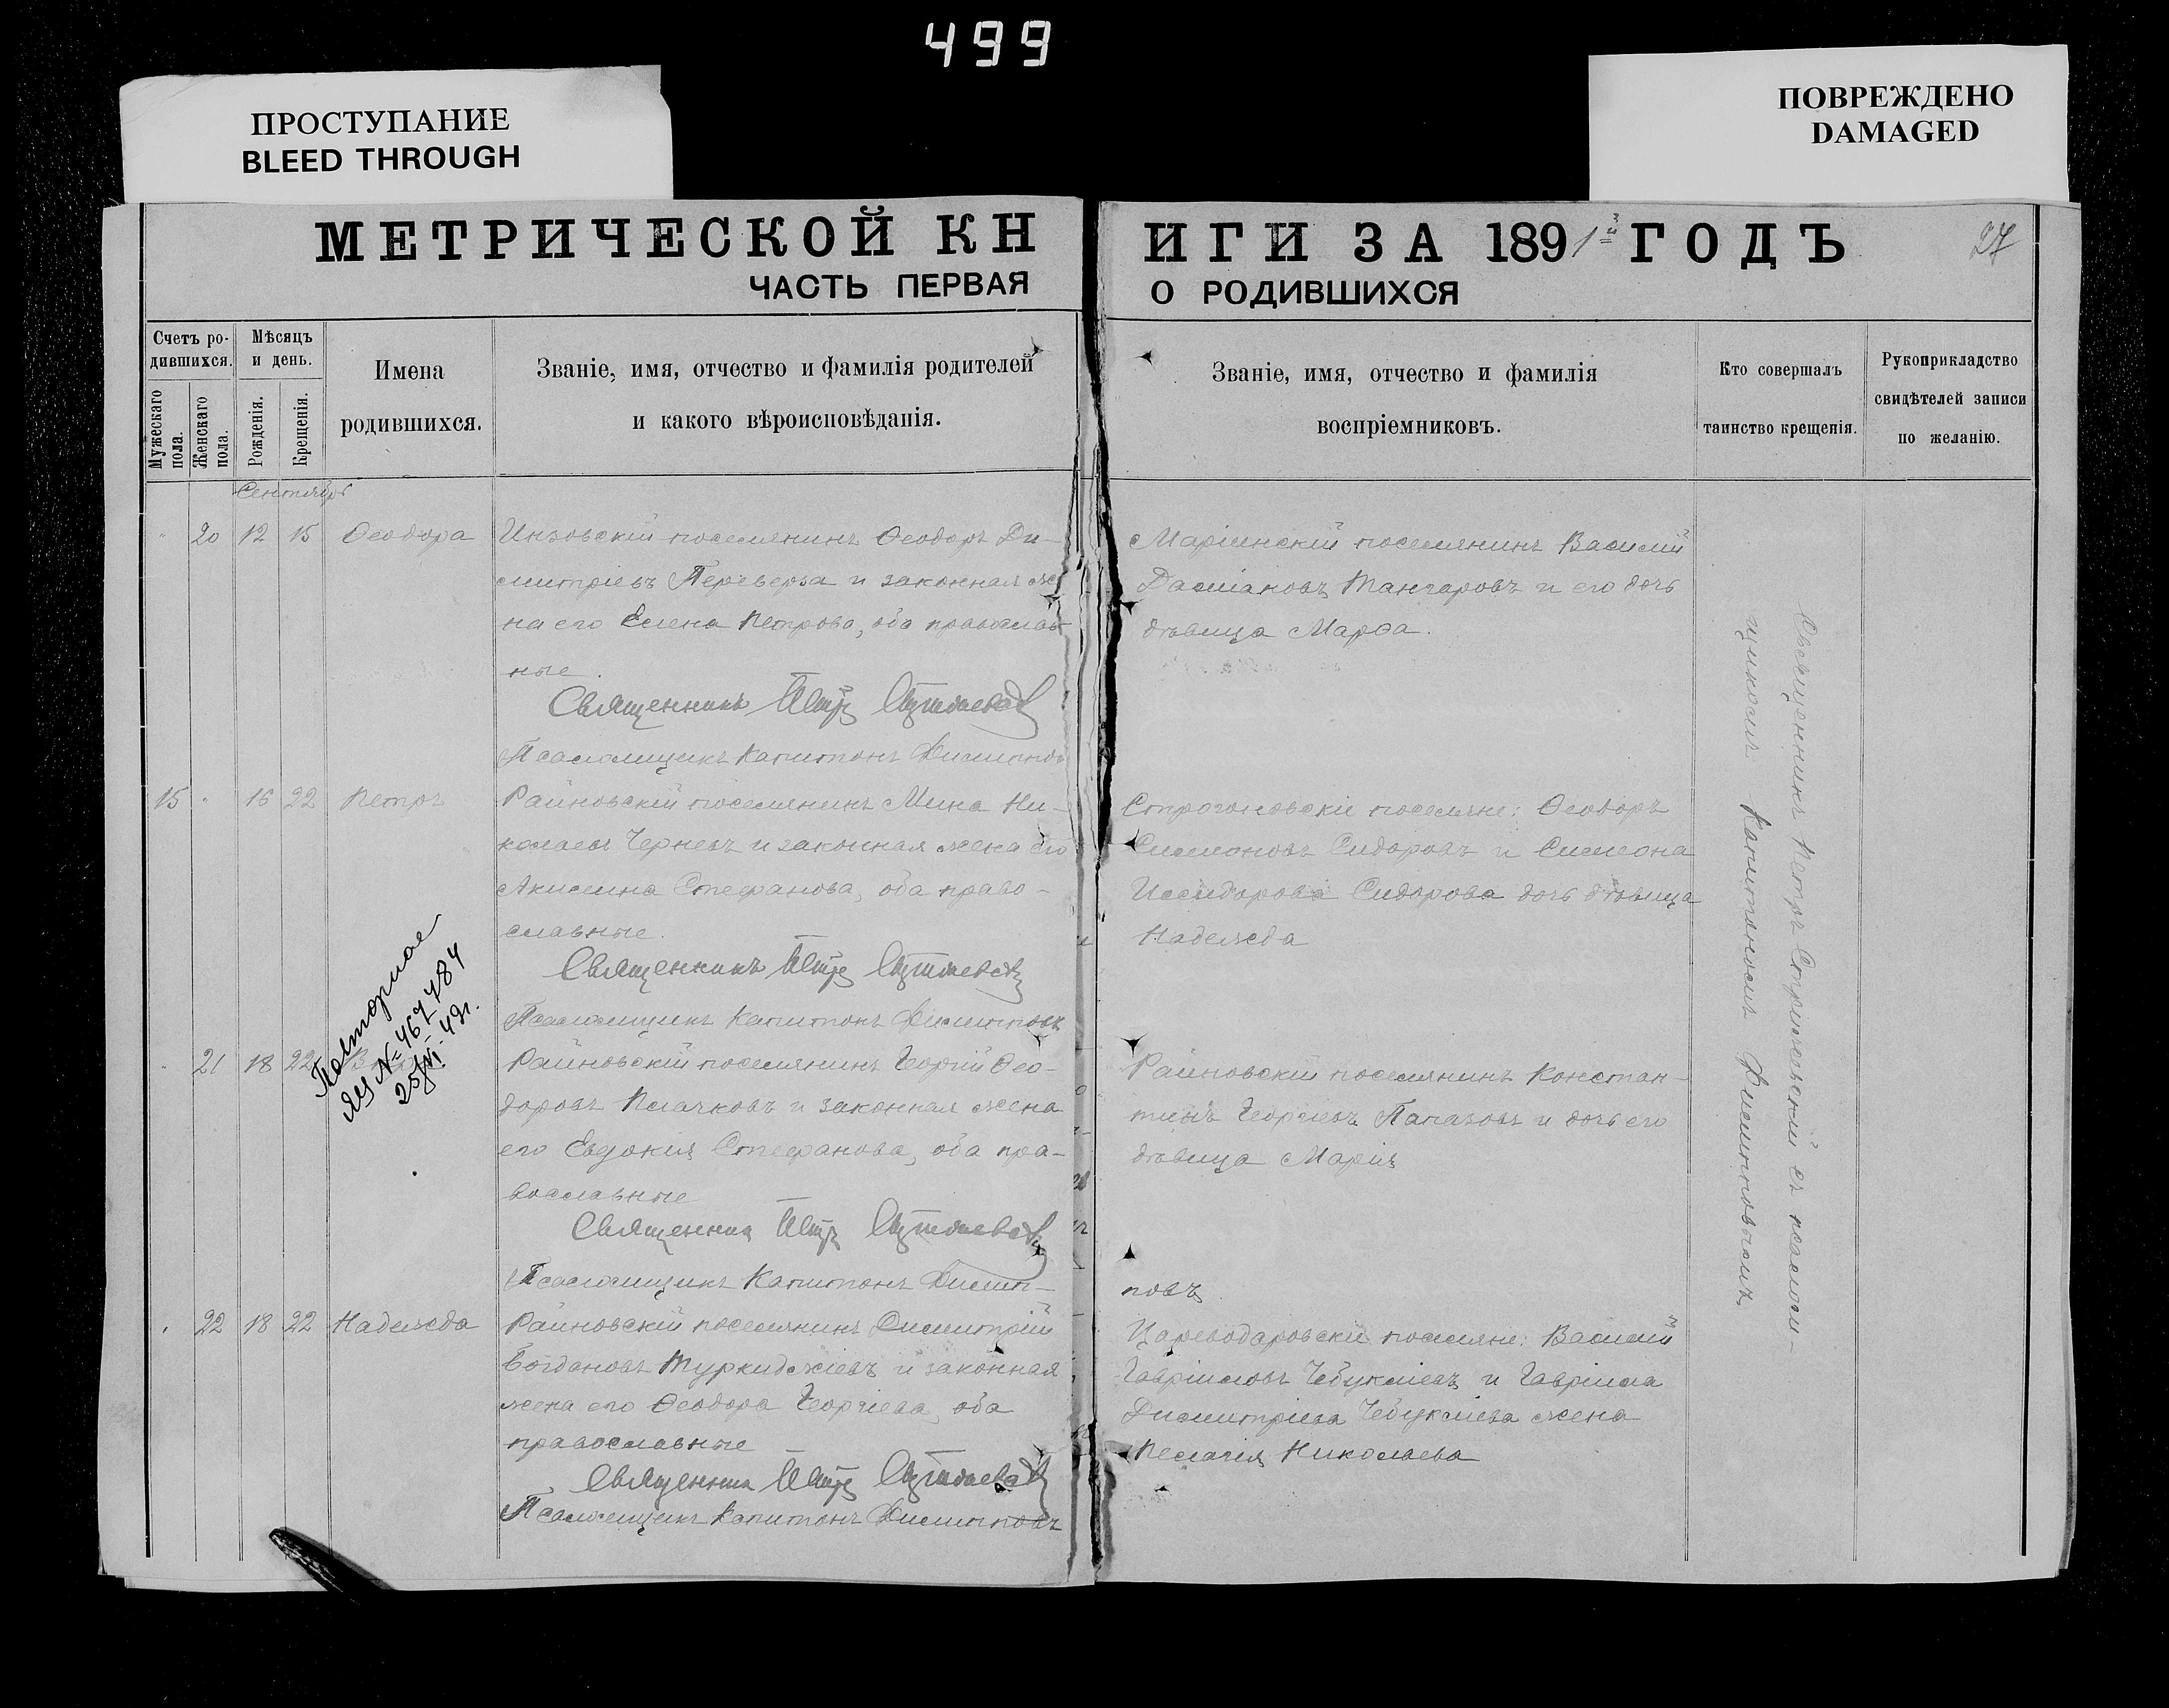 499
ПРОСТУПАНИЕ
BLEED THROUGH
ПОВРЕЖДЕНО
DAMAGED
МЕТРИЧЕСКОЙ КН
ЧАСТЬ ПЕРВАЯ
ИГИ ЗА 1891 й ГОДЪ
О РОДИВШИХСЯ
27
Счетъ ро-
дившихся.
Мужескаго
пола.
Женскаго
пола.
Мѣсяцъ
и день.
Рожденія.
Крещенія.
Имена
родившихся.
Званіе, имя, отчество и фамилія родителей
и какого вѣроисповѣданія.
Званіе, имя, отчество и фамилія
воспріемниковъ.
Кто совершалъ
таинство крещенія.
Рукоприкладство
свидѣтелей записи
по желанію.
Сентябрь
" 20 12 15 Ѳеодора
Инзовскій поселянинъ Ѳеодоръ Ди-
митріевъ Переверза и законная же
на его Елена Петрова, оба православ
ные.
Священникъ Петръ
Псаломщикъ Капитонъ Филипповъ
Маріинскій поселянинъ Василій
Даміановъ Танчаровъ и его дочь
дѣвица Марѳа.
15 " 16 22 Петръ
Райновскій поселянинъ Мина Ни-
колаевъ Черневъ и законная жена его
Акилина Стефанова, оба право-
славные.
Священникъ Петръ
Псаломщикъ Капитонъ Филипповъ
Строгоновскіе поселяне: Ѳеодоръ
Симеоновъ Сидоровъ и Симеона
Исидорова Сидорова дочь дѣвица
Надежда
Повторное
ЯЦ № 467484
25/VI-49г.
" 21 18 22
Райновскій поселянинъ Георгій Ѳео-
доровъ Плачковъ и законная жена
его Евдокія Стефанова, оба пра-
вославные
Священникъ Петръ
Псаломщикъ Капитонъ Филип-
повъ
Райновскій поселянинъ Констан-
тинъ Георгіевъ Папазовъ и дочь его
дѣвица Марія
" 22 18 22 Надежда
Райновскій поселянинъ Димитрій
Богдановъ Туркиджіевъ и законная
жена его Ѳеодора Георгіева, оба
православные
Священникъ Петръ
Псаломщикъ Капитонъ Филипповъ
Цареводаровскіе поселяне: Василій
Гавріиловъ Чебукліевъ и Гавріила
Димитріева Чебукліева жена
Пелагія Николаева
Священникъ Петръ съ псалом-
щикомъ Капитономъ Филипповымъ